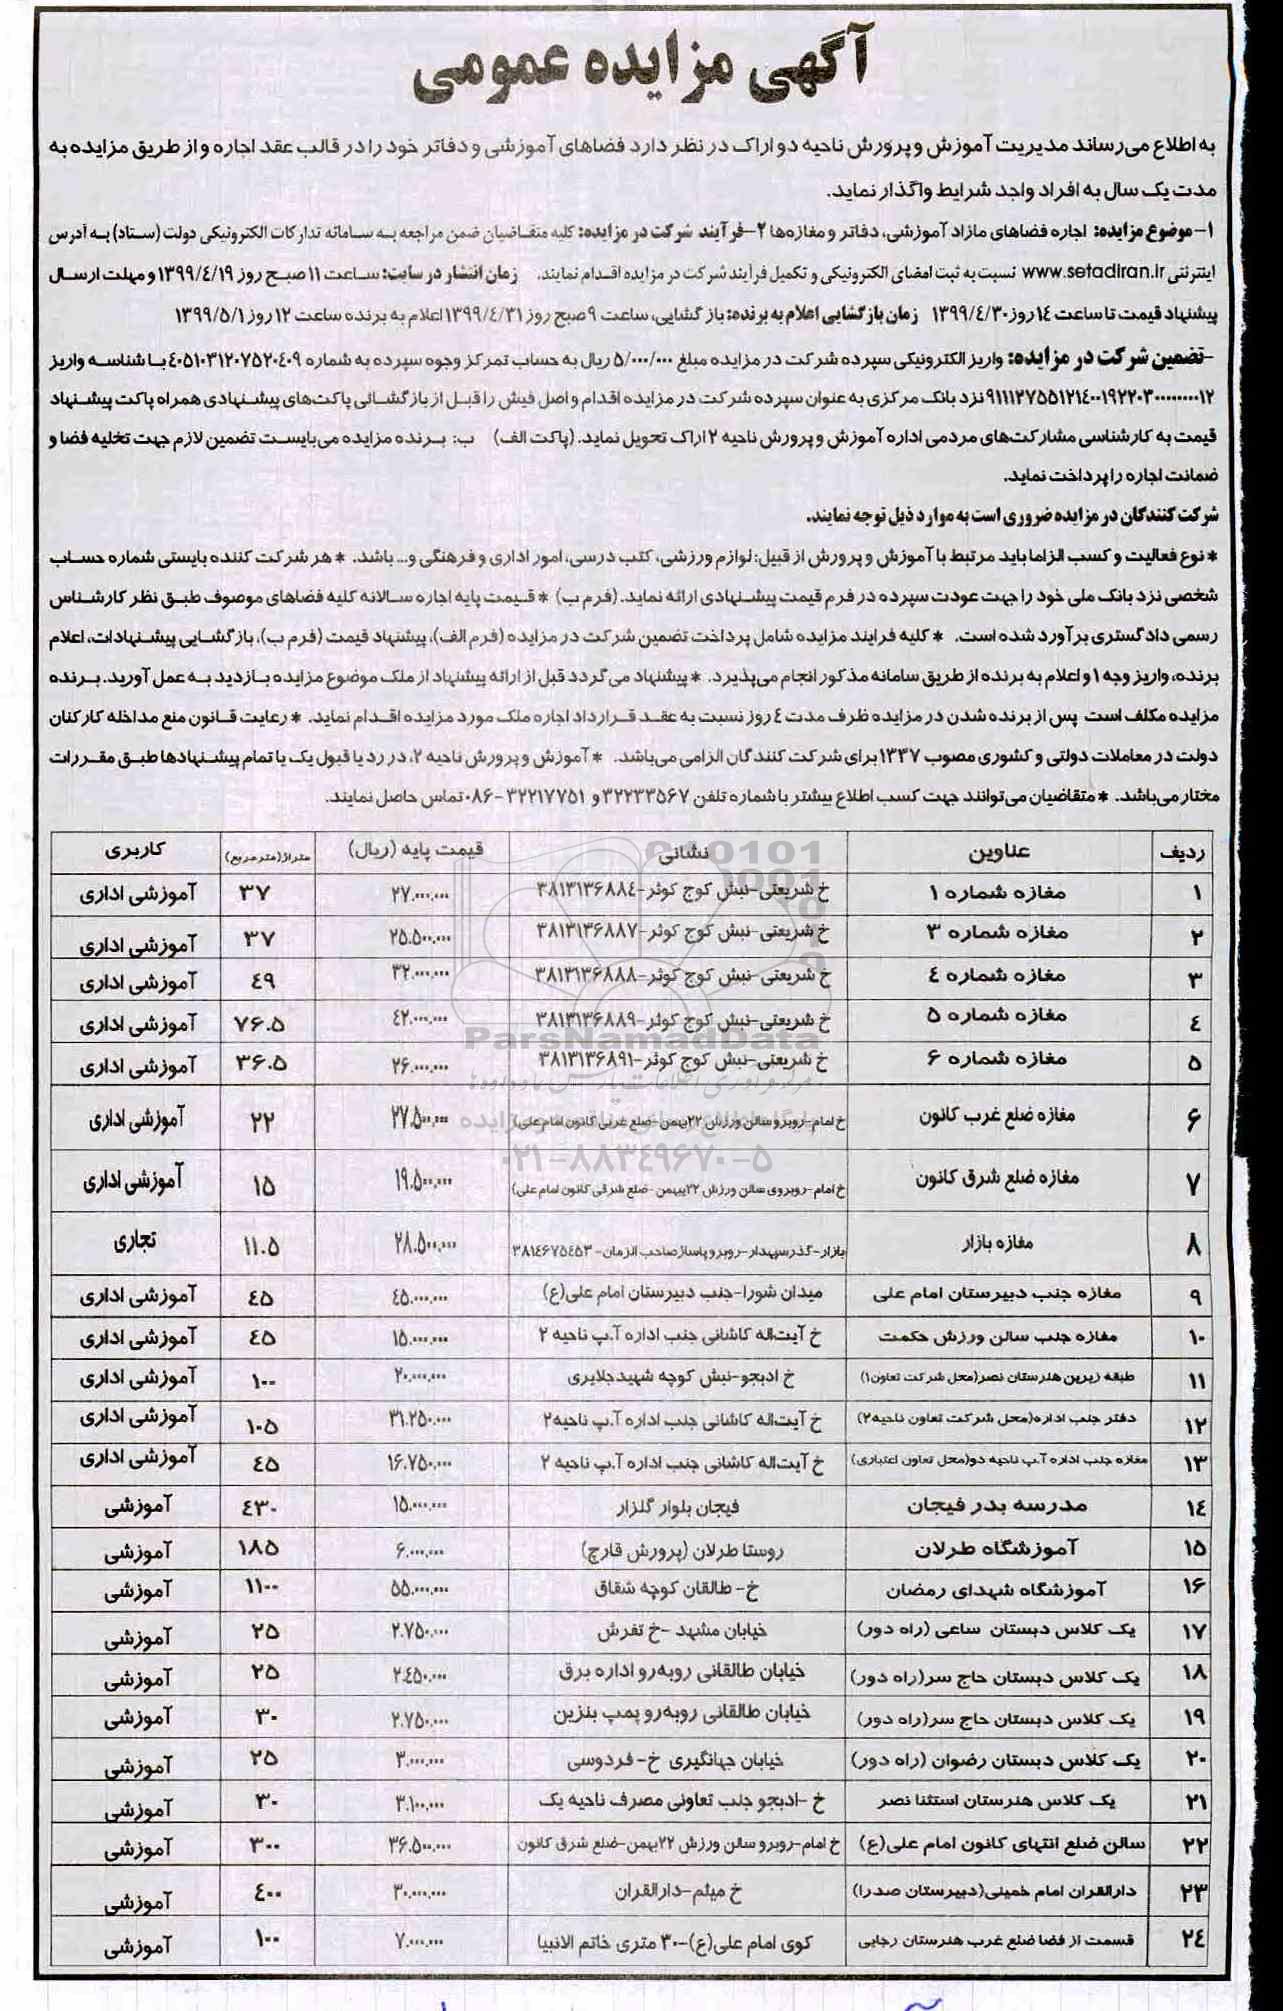 آگهی مزایده عمومی
به اطلاع می‌رساند مدیریت آموزش و پرورش ناحیه دو اراک در نظر دارد فضاهای آموزشی و دفاتر خود را در قالب عقد اجاره و از طریق مزایده به
مدت یک سال به افراد واجد شرایط واگذار نماید.
۱-موضوع مزایده: اجاره فضاهای مازاد آموزشی، دفاتر و مغازه‌ها ۲-فرآیند شرکت در مزایده: کلیه متقاضیان ضمن مراجعه به سامانه تدارکات الکترونیکی دولت (ستاد) به آدرس
اینترنتی www.setadiran.ir نسبت به ثبت امضای الکترونیکی و تکمیل فرآیند شرکت در مزایده اقدام نمایند. زمان انتشار در سایت: ساعت ۱۱ صبح روز ۱۳۹۹/٤/۱۹ و مهلت ارسال
پیشنهاد قیمت تا ساعت ۱٤ روز ۱۳۹۹/٤/۳۰ زمان بازگشایی اعلام به برنده: بازگشایی، ساعت ۹ صبح روز ۱۳۹۹/٤/۳۱ اعلام به برنده ساعت ۱۲ روز ۱۳۹۹/۵/۱
-تضمین شرکت در مزایده: واریز الکترونیکی سپرده شرکت در مزایده مبلغ ۵/۰۰۰/۰۰۰ ریال به حساب تمرکز وجوه سپرده به شماره ٤۰۵۱۰۳۱۲۰۷۵۲۰٤۰۹ با شناسه واریز
نزد بانک مرکزی به عنوان سپرده شرکت در مزایده اقدام و اصل فیش را قبل از بازگشائی پاکت‌های پیشنهادی همراه پاکت پیشنهاد
قیمت به کارشناسی مشارکت‌های مردمی اداره آموزش و پرورش ناحیه ۲ اراک تحویل نماید. (پاکت الف) ب: برنده مزایده می‌بایست تضمین لازم جهت تخلیه فضا و
ضمانت اجاره را پرداخت نماید.
شرکت کنندگان در مزایده ضروری است به موارد ذیل توجه نمایند.
* نوع فعالیت و کسب الزاما باید مرتبط با آموزش و پرورش از قبیل: لوازم ورزشی، کتب درسی، امور اداری و فرهنگی و... باشد. * هر شرکت کننده بایستی شماره حساب
شخصی نزد بانک ملی خود را جهت عودت سپرده در فرم قیمت پیشنهادی ارائه نماید. (فرم ب) * قیمت پایه اجاره سالانه کلیه فضاهای موصوف طبق نظر کارشناس
رسمی دادگستری برآورد شده است. * کلیه فرایند مزایده شامل پرداخت تضمین شرکت در مزایده (فرم الف)، پیشنهاد قیمت (فرم ب)، بازگشایی پیشنهادات، اعلام
برنده، واریز وجه ۱ و اعلام به برنده از طریق سامانه مذکور انجام می‌پذیرد. * پیشنهاد می گردد قبل از ارائه پیشنهاد از ملک موضوع مزایده بازدید به عمل آورید. برنده
مزایده مکلف است پس از برنده شدن در مزایده ظرف مدت ٤ روز نسبت به عقد قرارداد اجاره ملک مورد مزایده اقدام نماید. * رعایت قانون منع مداخله کارکنان
دولت در معاملات دولتی و کشوری مصوب ۱۳۳۷ برای شرکت کنندگان الزامی می‌باشد. * آموزش و پرورش ناحیه ۲، در رد یا قبول یک یا تمام پیشنهادها طبق مقررات
مختار می‌باشد. * متقاضیان می‌توانند جهت کسب اطلاع بیشتر با شماره تلفن ۳۲۲۳۳۵۶۷ و ۳۲۲۱۷۷۵۱-۰۸۶ تماس حاصل نمایند.
ردیف عناوین نشانی قیمت پایه (ریال) متراژ(مترمربع) کاربری
۱ مغازه شماره ۱ خ شریعتی-نبش کوچ کوثر-۳۸۱۳۱۳۶۸۸٤ ۲۷.۰۰۰.۰۰۰ ۳۷ آموزشی اداری
۲ مغازه شماره ۳ خ شریعتی-نبش کوچ کوثر-۳۸۱۳۱۳۶۸۸۷ ۲۵.۵۰۰.۰۰۰ ۳۷ آموزشی اداری
۳ مغازه شماره ٤ خ شریعتی-نبش کوچ کوثر-۳۸۱۳۱۳۶۸۸۸ ۳۲.۰۰۰.۰۰۰ ٤۹ آموزشی اداری
٤ مغازه شماره ۵ خ شریعتی-نبش کوچ کوثر-۳۸۱۳۱۳۶۸۸۹ ٤۲.۰۰۰.۰۰۰ ۷۶.۵ آموزشی اداری
۵ مغازه شماره ۶ خ شریعتی-نبش کوچ کوثر-۳۸۱۳۱۳۶۸۹۱ ۲۶.۰۰۰.۰۰۰ ۳۶.۵ آموزشی اداری
۶ مغازه ضلع غرب کانون خ امام-روبرو سالن ورزش ۲۲بهمن-ضلع غربی کانون امام علی) ۲۷.۵۰۰.۰۰۰ ۲۲ آموزشی اداری
۷ مغازه ضلع شرق کانون خ امام-روبروی سالن ورزش ۲۲بهمن-ضلع شرقی کانون امام علی) ۱۹.۵۰۰.۰۰۰ ۱۵ آموزشی اداری
۸ مغازه بازار بازار-گذر سپهدار-روبرو پاساژ صاحب الزمان-۳۸۱٤۶۷۵٤۵۳ ۲۸.۵۰۰.۰۰۰ ۱۱.۵ تجاری
۹ مغازه جنب دبیرستان امام علی میدان شورا-جنب دبیرستان امام علی(ع) ٤۵.۰۰۰.۰۰۰ ٤۵ آموزشی اداری
۱۰ مغازه جنب سالن ورزش حکمت خ آیت‌اله کاشانی جنب اداره آ.پ ناحیه ۲ ۱۵.۰۰۰.۰۰۰ ٤۵ آموزشی اداری
۱۱ طبقه زیرین هنرستان نصر(محل شرکت تعاون۱) خ ادبجو-نبش کوچه شهید جلایری ۲۰.۰۰۰.۰۰۰ ۱۰۰ آموزشی اداری
۱۲ دفتر جنب اداره(محل شرکت تعاون ناحیه۲) خ آیت‌اله کاشانی جنب اداره آ.پ ناحیه۲ ۳۱.۲۵۰.۰۰۰ ۱۰۵ آموزشی اداری
۱۳ مغازه جنب اداره آ.پ ناحیه دو(محل تعاون اعتباری) خ آیت‌اله کاشانی جنب اداره آ.پ ناحیه ۲ ۱۶.۷۵۰.۰۰۰ ٤۵ آموزشی اداری
۱٤ مدرسه بدر فیجان فیجان بلوار گلزار ۱۵.۰۰۰.۰۰۰ ٤۳۰ آموزشی
۱۵ آموزشگاه طرلان روستا طرلان (پرورش قارچ) ۶.۰۰۰.۰۰۰ ۱۸۵ آموزشی
۱۶ آموزشگاه شهدای رمضان خ-طالقان کوچه شقاق ۵۵.۰۰۰.۰۰۰ ۱۱۰۰ آموزشی
۱۷ یک کلاس دبستان ساعی (راه دور) خیابان مشهد -خ تفرش ۲.۷۵۰.۰۰۰ ۲۵ آموزشی
۱۸ یک کلاس دبستان حاج سر(راه دور) خیابان طالقانی روبه‌رو اداره برق ۲.٤۵۰.۰۰۰ ۲۵ آموزشی
۱۹ یک کلاس دبستان حاج سر(راه دور) خیابان طالقانی روبه‌رو پمپ بنزین ۲.۷۵۰.۰۰۰ ۳۰ آموزشی
۲۰ یک کلاس دبستان رضوان (راه دور) خیابان جهانگیری خ-فردوسی ۳.۰۰۰.۰۰۰ ۲۵ آموزشی
۲۱ یک کلاس هنرستان استثنا نصر خ -ادبجو جنب تعاونی مصرف ناحیه یک ۳.۱۰۰.۰۰۰ ۳۰ آموزشی
۲۲ سالن ضلع انتهای کانون امام علی(ع) خ امام-روبرو سالن ورزش ۲۲بهمن-ضلع شرق کانون ۳۶.۵۰۰.۰۰۰ ۳۰۰ آموزشی
۲۳ دارالقران امام خمینی(دبیرستان صدرا) خ میثم-دارالقران ۳۰.۰۰۰.۰۰۰ ٤۰۰ آموزشی
۲٤ قسمت از فضا ضلع غرب هنرستان رجایی کوی امام علی(ع)-۳۰ متری خاتم الانبیا ۷.۰۰۰.۰۰۰ ۱۰۰ آموزشی
ParsNamadData
۰۲۱-۸۸۳٤۹۶۷۰-۵